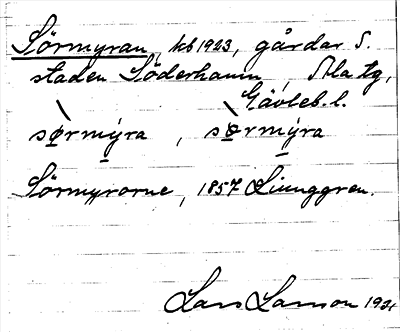 Sörmyran, kb 1923, gårdar S.
staden Söderhamn, Ala tg,
Gävleb. l.
sørmýra, sørmýra
Sörmyrorne, 1857 Ljunggren.
Lars Larsson 1921